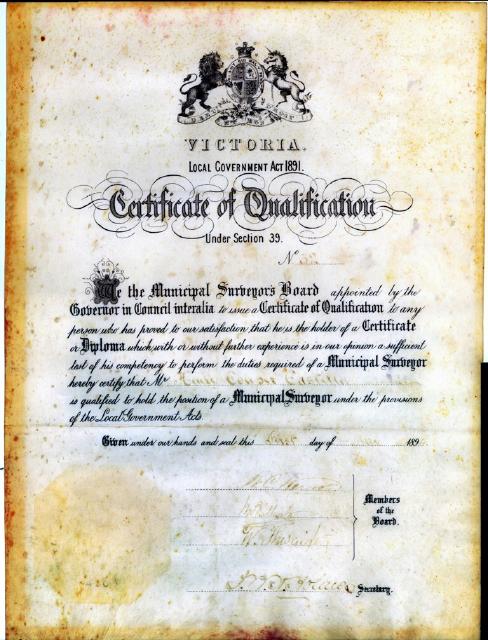 VICTORIA.
LOCAL GOVERNMENT ACT 1891.
Certificate of Qualification
Under Section 39.
No
We the Municipal Surveyors Board appointed by the
Governor in Council interalia to issue a Certificate of Qualification to any
person who has proved to our satisfaction that he is the holder of a Certificate
or Diploma which with or without further experience is in our opinion a sufficient
test of his competency to perform the duties required of a Municipal Surveyor
hereby certify that Mr
is qualified to hold the position of a Municipal Surveyor under the provisions
of the Local Government Acts.
Given under our hands and seal this day of 189
Members
of the
Board.
Secretary.